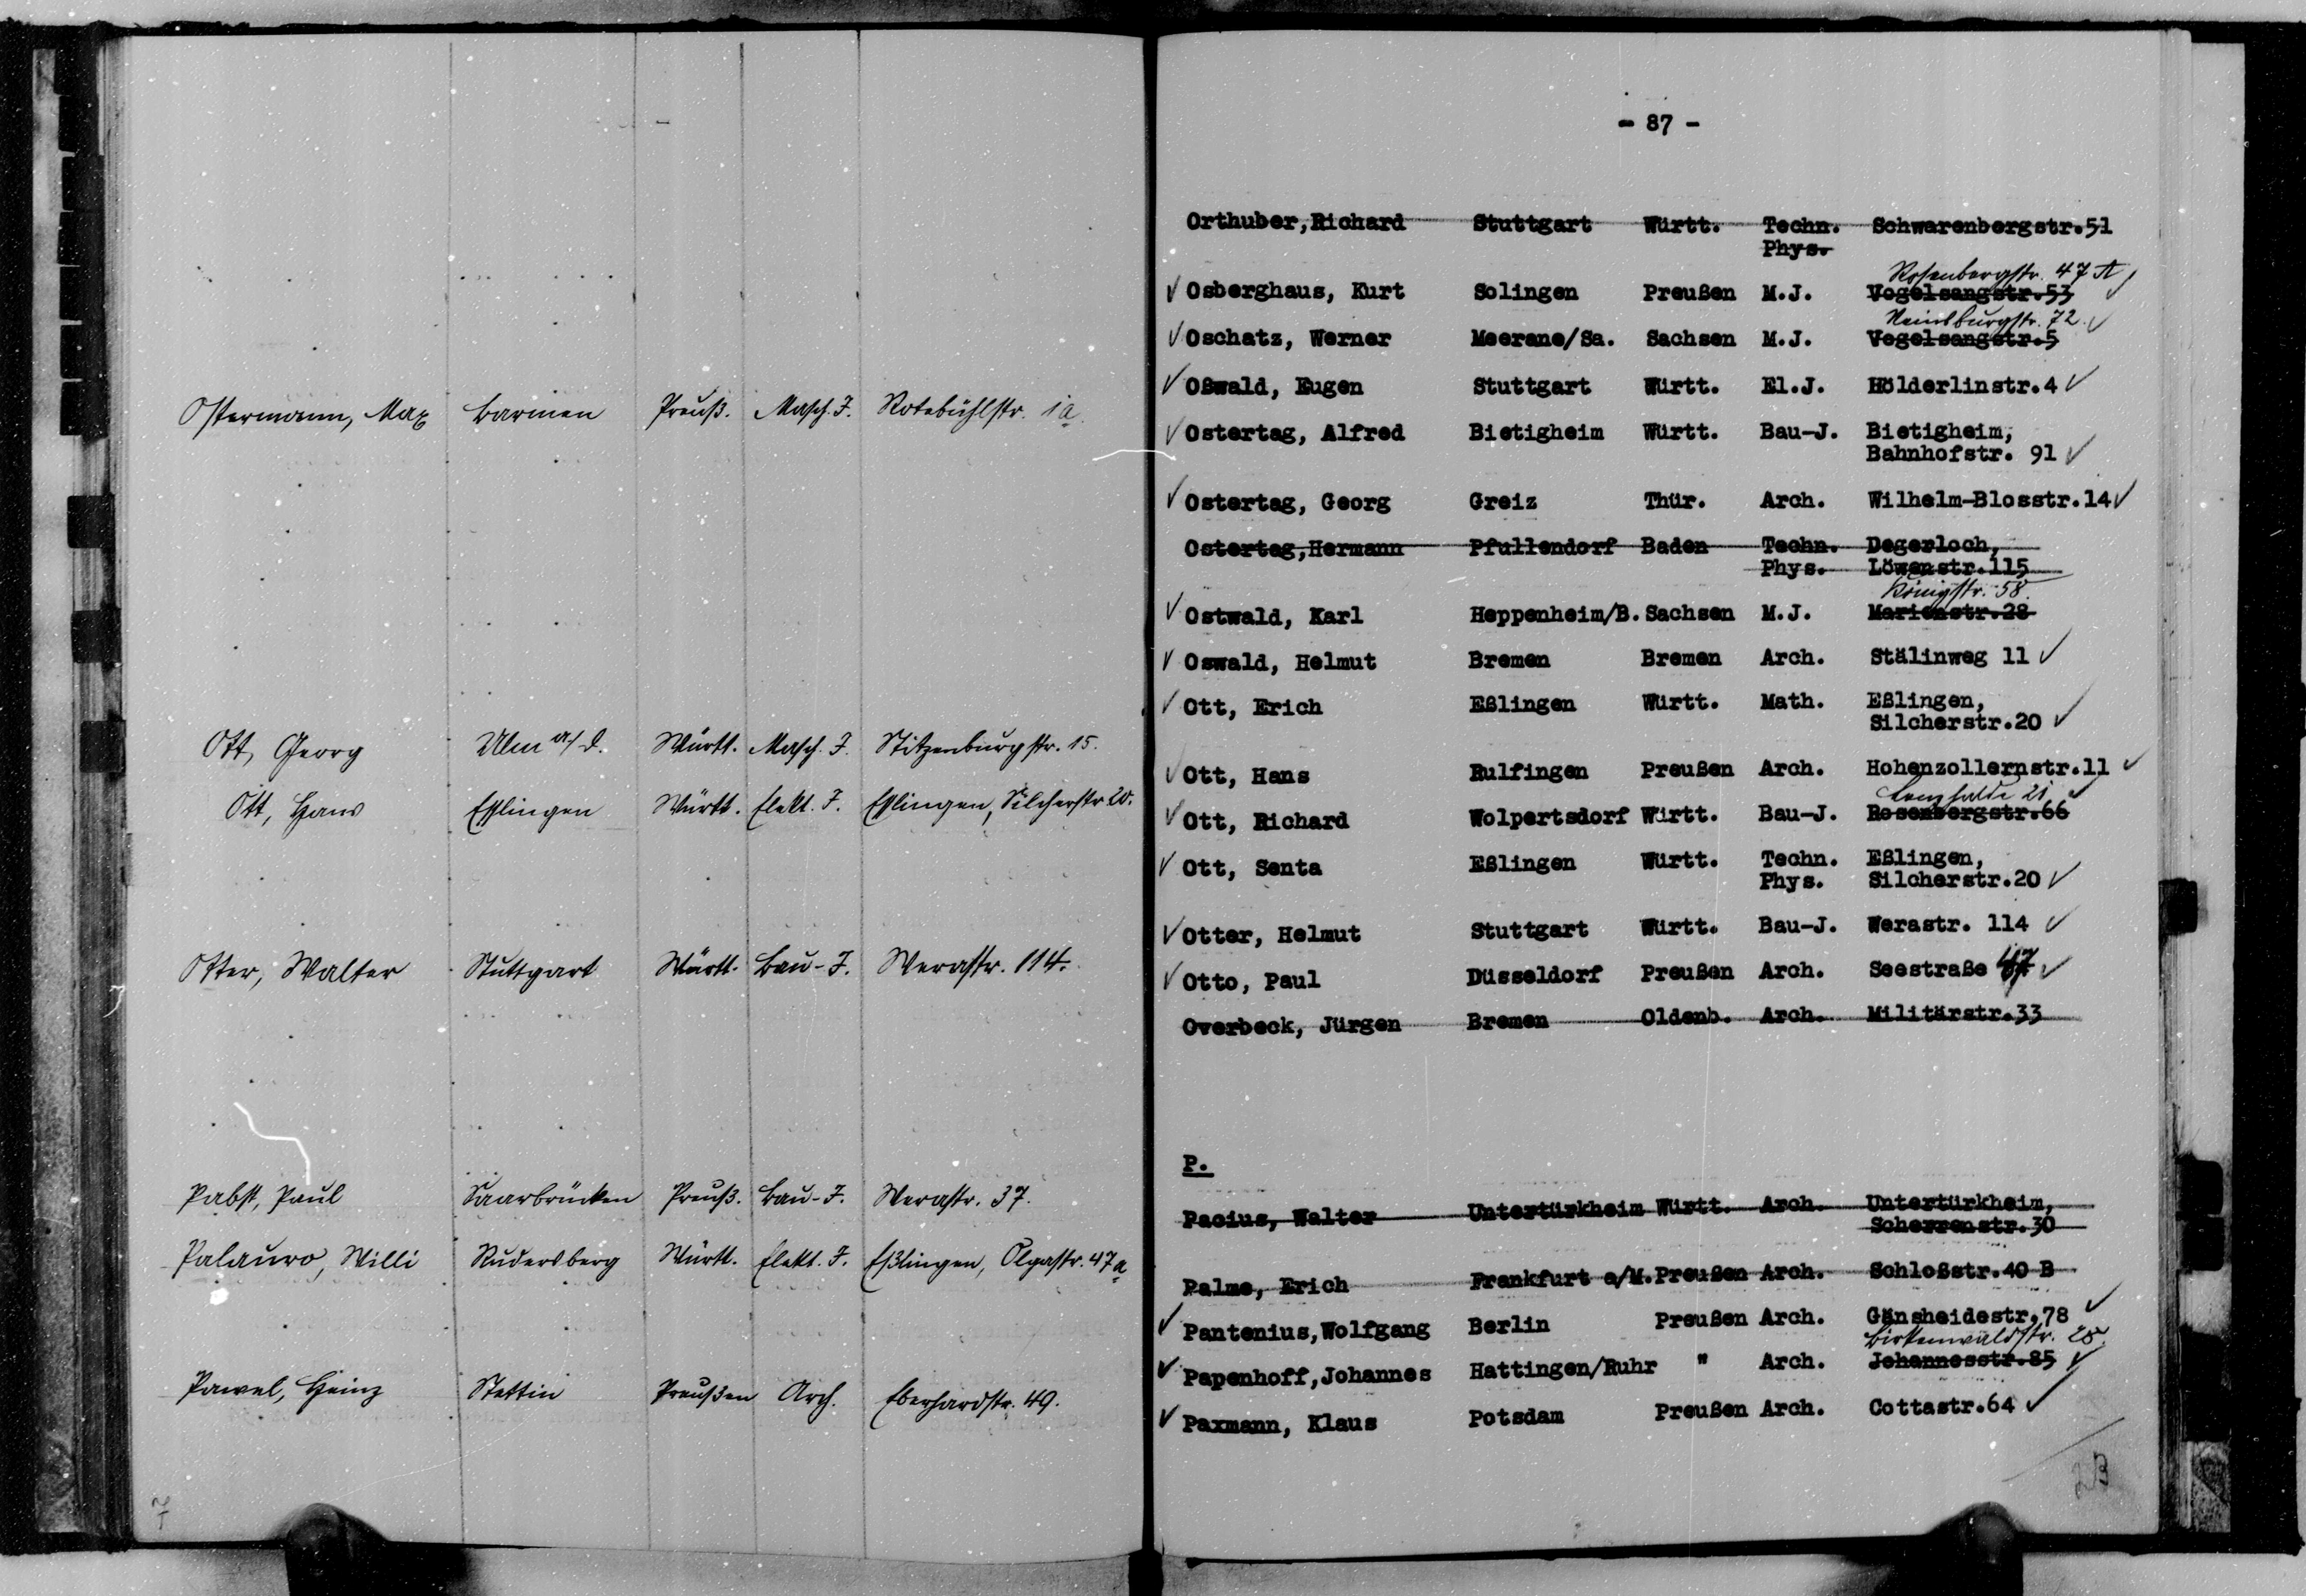 Ostermann, Max Barmen Preuß. Masch. J. Rotebühlstr. 1a.
Ott, Georg Ulm a/d. Württ. Masch. J. Stitzenburgstr. 15.
Ott, Hans Esslingen Württ. Elekt. J. Esslingen, Silcherstr 20.
Otter, Walter Stuttgart Württ. Bau-J. Werastr. 114.
Pabst, Paul Saarbrücken Preuß. Bau-J. Werastr. 37.
Palauro, Willi Rudersberg Württ. Elekt. J. Eßlingen, Olgastr. 47a
Pawel, Heinz Stettin Preußen Arch. Eberhardstr. 49.
7
- 87 -
Orthuber,Richard Stuttgart Württ. Techn. Schwarenbergstr.51
Phys.
Rosenbergstr. 47 A
Osberghaus, Kurt Solingen Preußen M.J. Vogelsangstr.53
Reinsburgstr. 72.
Oschatz, Werner Meerane/Sa. Sachsen M.J. Vogelsangstr.5
Oßwald, Eugen Stuttgart Württ. El.J. Hölderlinstr.4
Ostertag, Alfred Bietigheim Württ. Bau-J. Bietigheim,
Bahnhofstr. 91
Ostertag, Georg Greiz Thür. Arch. Wilhelm-Blosstr.14
Ostertag,Hermann Pfullendorf Baden Techn. Degerloch,
Phys. Löwenstr.115
Königstr. 58.
Ostwald, Karl Heppenheim/B. Sachsen M.J. Marienstr.28
Oswald, Helmut Bremen Bremen Arch. Stälinweg 11
Ott, Erich Eßlingen Württ. Math. Eßlingen,
Silcherstr.20
Ott, Hans Rulfingen Preußen Arch. Hohenzollernstr.11
Lenzhalde 21
Ott, Richard Wolpertsdorf Württ. Bau-J. Rosenbergstr.66
Ott, Senta Eßlingen Württ. Techn. Eßlingen,
Phys. Silcherstr.20
Otter, Helmut Stuttgart Württ. Bau-J. Werastr. 114
Otto, Paul Düsseldorf Preußen Arch. Seestraße 47
Overbeck, Jürgen Bremen Oldenb. Arch. Militärstr.33
P.
Pacius, Walter Untertürkheim Württ. Arch. Untertürkheim,
Scherrenstr.30
Palme, Erich Frankfurt a/M. Preußen Arch. Schloßstr.40 B
Pantenius,Wolfgang Berlin Preußen Arch. Gänsheidestr.78
Birkenwaldstr. 28.
Papenhoff,Johannes Hattingen/Ruhr " Arch. Johannesstr.85
Paxmann, Klaus Potsdam Preußen Arch. Cottastr.64